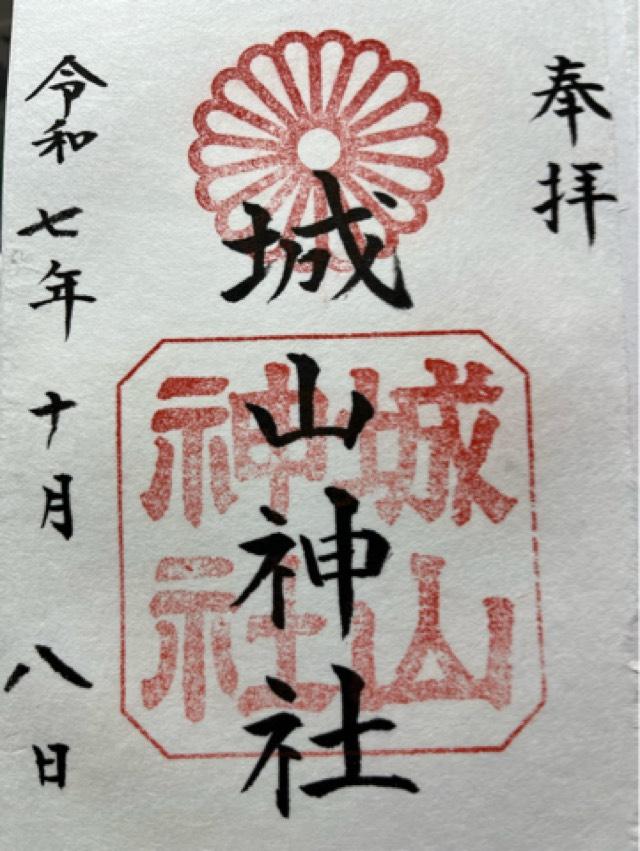 奉拝
城山神社
城山
神社
令和七年十月八日